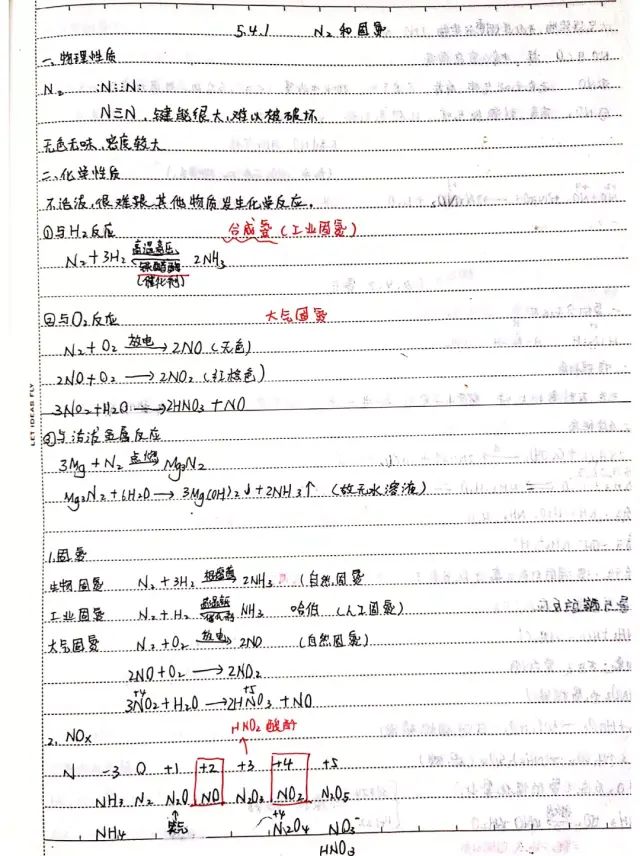 5.4.1 N₂和固氮
一、物理性质
N₂ :N⋮⋮N:
N≡N,键能很大,难以被破坏
无色无味,密度较大
二、化学性质
不活泼,很难跟其他物质发生化学反应。
①与H₂反应 合成氨(工业固氮)
N₂+3H₂ 高温高压 2NH₃
(催化剂)
②与O₂反应 大气固氮
N₂+O₂ 放电→ 2NO(无色)
2NO+O₂ → 2NO₂(红棕色)
3NO₂+H₂O → 2HNO₃+NO
③与活泼金属反应
3Mg+N₂ 点燃→ Mg₃N₂
Mg₃N₂+6H₂O → 3Mg(OH)₂↓+2NH₃↑ (故无水溶液)
1.固氮
生物固氮 N₂+3H₂ 根瘤菌→ 2NH₃ (自然固氮
工业固氮 N₂+H₂ 高温高压 催化剂 NH₃ 哈伯(人工固氮)
大气固氮 N₂+O₂ 放电→ 2NO (自然固氮)
2NO+O₂ → 2NO₂
+4 +5
3NO₂+H₂O → 2HNO₃+NO
2. NOx HNO₂酸酐
N -3 0 +1 +2 +3 +4 +5
NH₃ N₂ N₂O NO N₂O₃ NO₂ N₂O₅
NH₄ 笑气 +4 N₂O₄ NO₃
HNO₃
LET IDEAS FLY